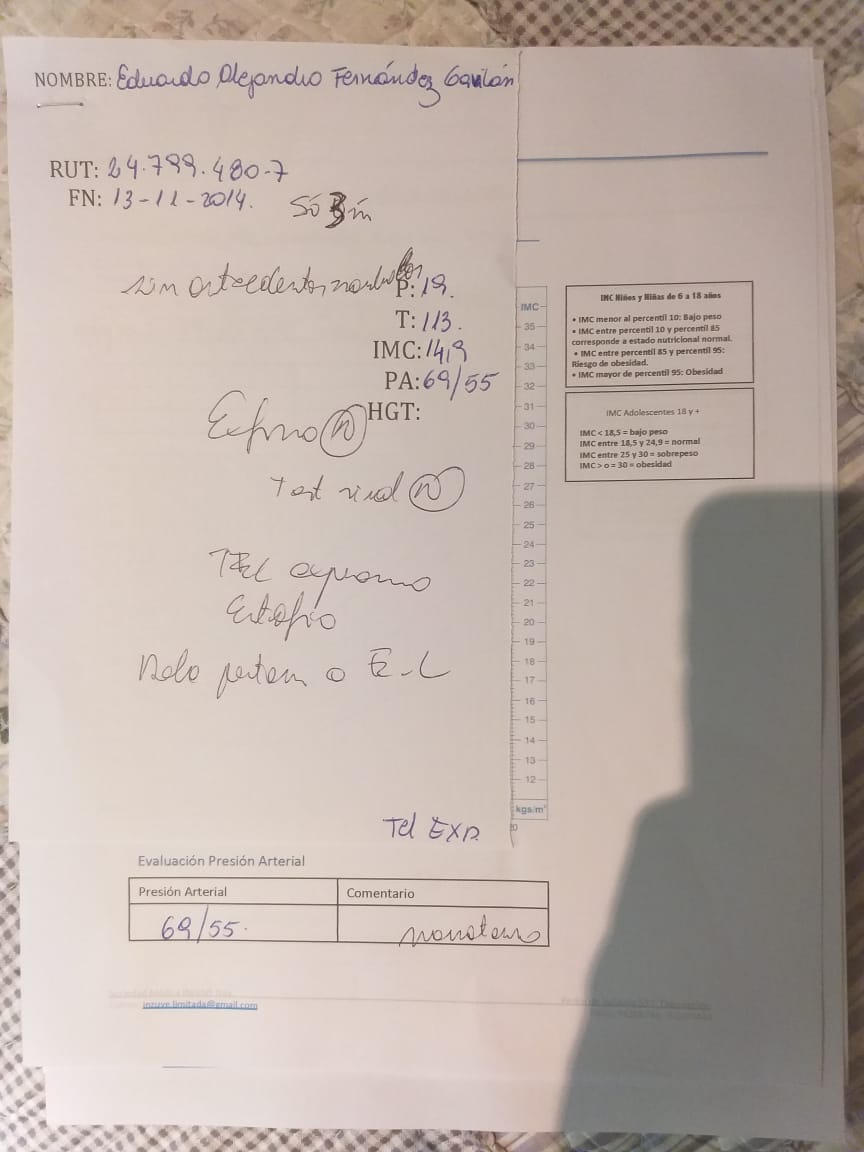 NOMBRE: Eduardo Alejandro Fernández Gavilán
RUT: 24.799.480-7
FN: 13-11-2014.
sin antecedentes
P: 19.
T: 113.
IMC: 14,9
PA: 69/55
HGT:
Test visual N
TEL expresivo
a E-L
Tel EXP.
IMC
35
34
33
32
31
30
29
28
27
26
25
24
23
22
21
20
19
18
17
16
15
14
13
12
kgs/m²
IMC Niños y Niñas de 6 a 18 años
• IMC menor al percentil 10: Bajo peso
• IMC entre percentil 10 y percentil 85
corresponde a estado nutricional normal.
• IMC entre percentil 85 y percentil 95:
Riesgo de obesidad.
• IMC mayor de percentil 95: Obesidad
IMC Adolescentes 18 y +
IMC < 18,5 = bajo peso
IMC entre 18,5 y 24,9 = normal
IMC entre 25 y 30 = sobrepeso
IMC > o = 30 = obesidad
Evaluación Presión Arterial
Presión Arterial
Comentario
69/55.
normotenso
inzuve.limitada@gmail.com